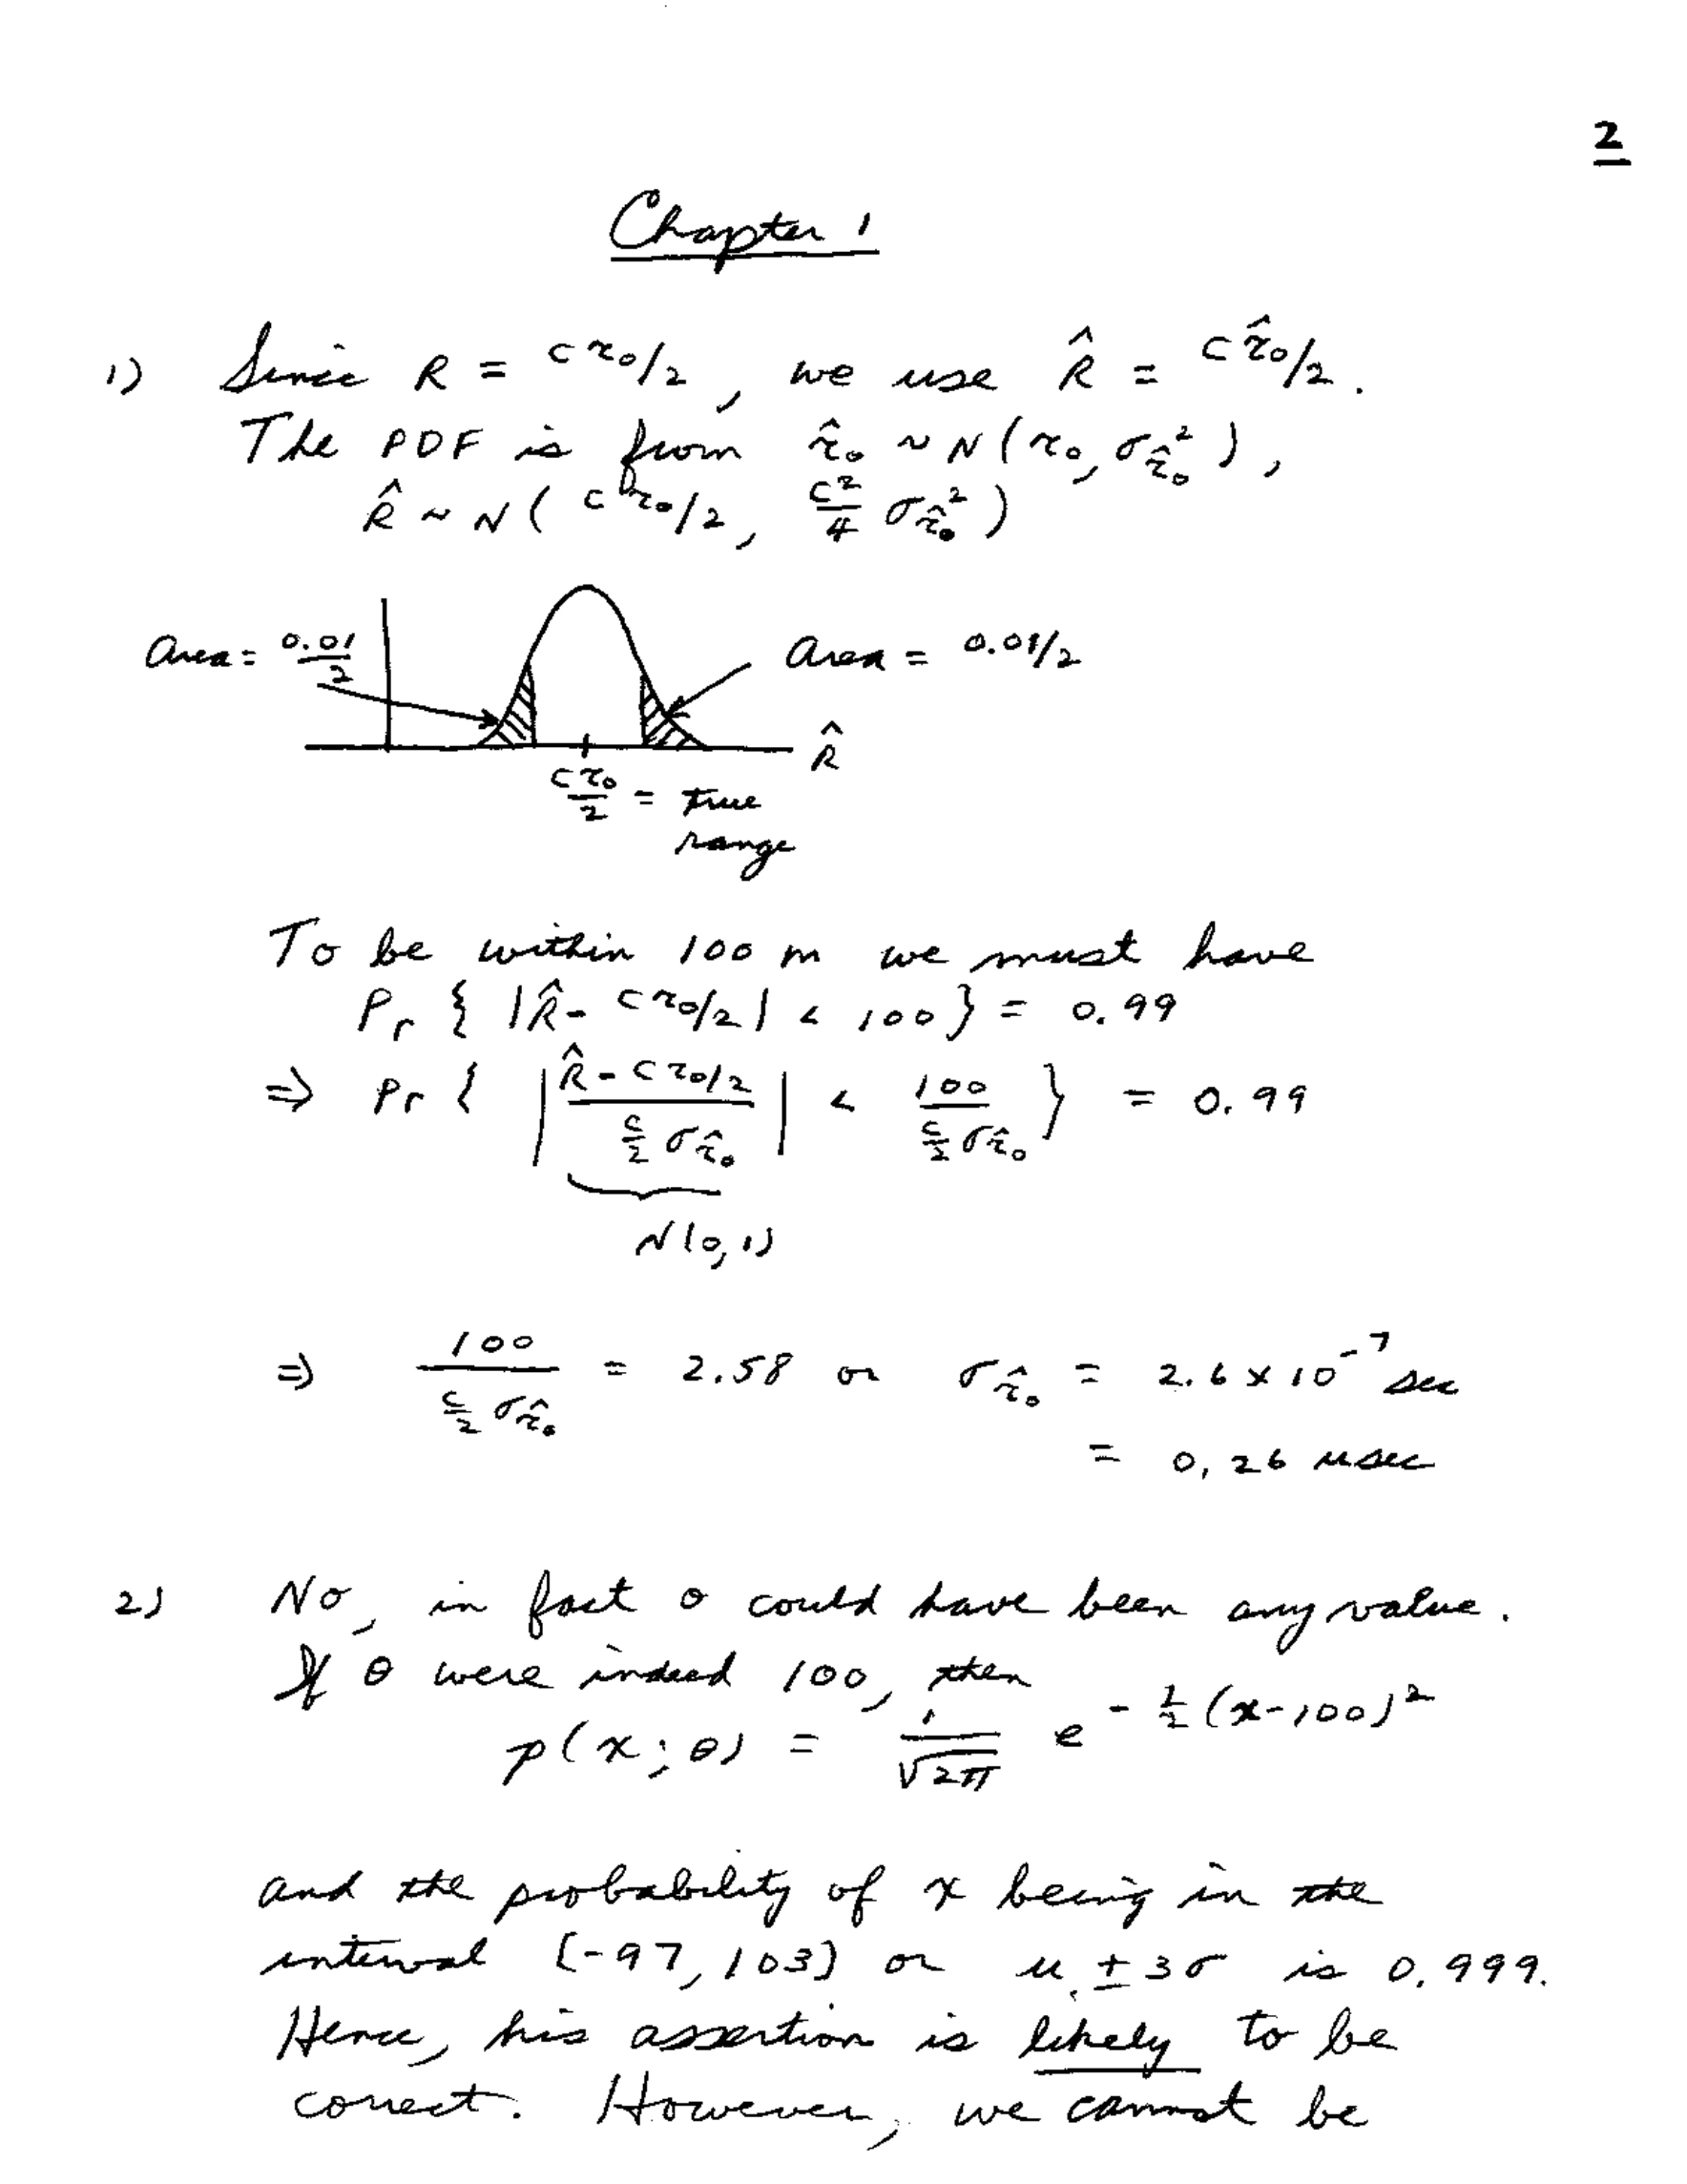 2
Chapter 1
1) Since R = cτ₀/2, we use R̂ = cτ̂₀/2.
The PDF is from τ̂₀ ~ N(τ₀, σ²_τ̂₀),
R̂ ~ N(cτ₀/2, c²/4 σ²_τ̂₀)
Area = 0.01/2
Area = 0.01/2
R̂
cτ₀/2 = true
range
To be within 100 m we must have
Pr { |R̂ - cτ₀/2| < 100 } = 0.99
⇒ Pr { | (R̂ - cτ₀/2) / (c/2 σ_τ̂₀) | < 100 / (c/2 σ_τ̂₀) } = 0.99
N(0,1)
⇒ 100 / (c/2 σ_τ̂₀) = 2.58 or σ_τ̂₀ = 2.6 x 10⁻⁷ sec
= 0.26 μsec
2) No, in fact θ could have been any value.
If θ were indeed 100, then
p(x; θ) = 1/√2π e^(-1/2 (x-100)²)
and the probability of x being in the
interval [-97, 103] or μ ± 3σ is 0.999.
Hence, his assertion is likely to be
correct. However, we cannot be